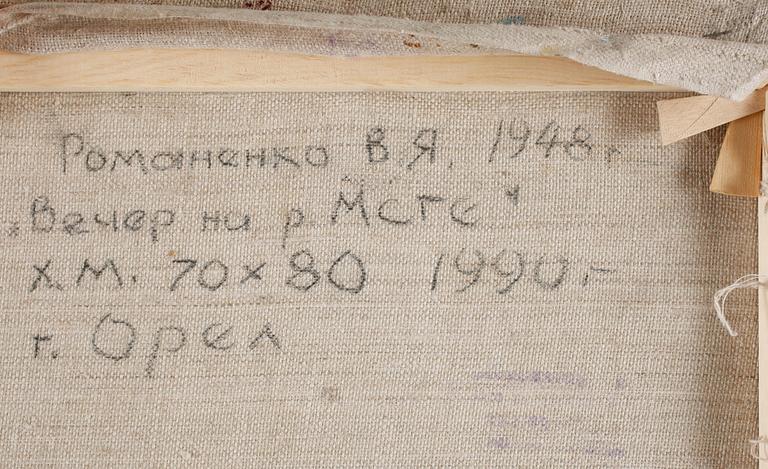 Романенко В.Я. 1948 г.
„Вечер на р Мсте“
Х.М. 70 x 80 1990 г
г. Орел